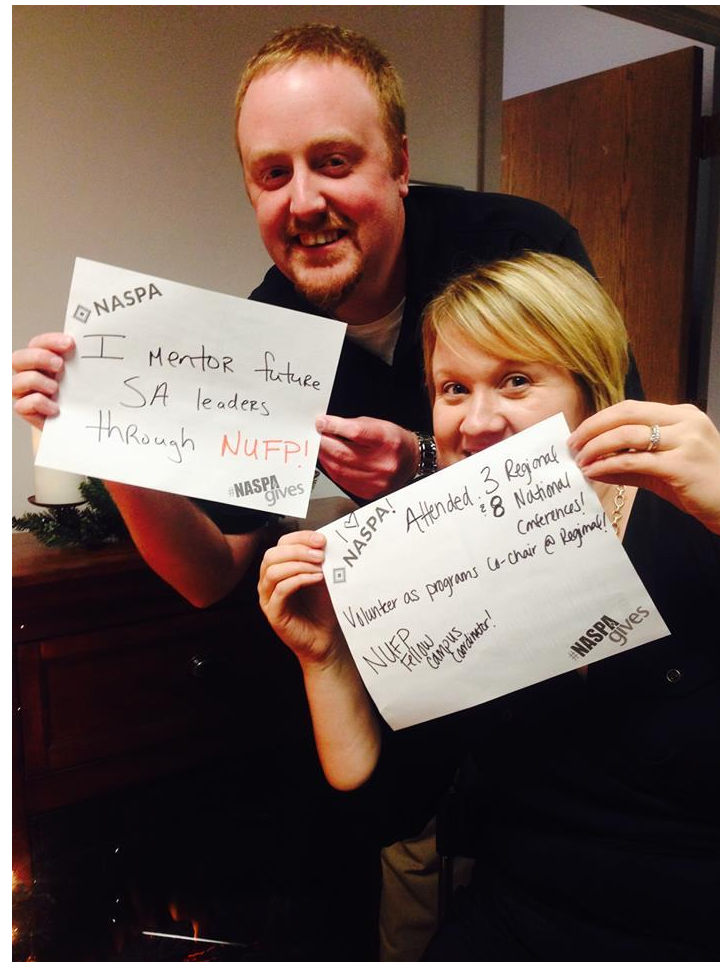 NASPA
I MENTOR future
SA leaders
through NUFP!
#NASPA
gives
I ♡
NASPA!
Attended: 3 Regional
& 8 National
Conferences!
Volunteer as programs Co-chair @ Regional!
NUFP
Fellow
Campus
Coordinator!
#NASPA
gives